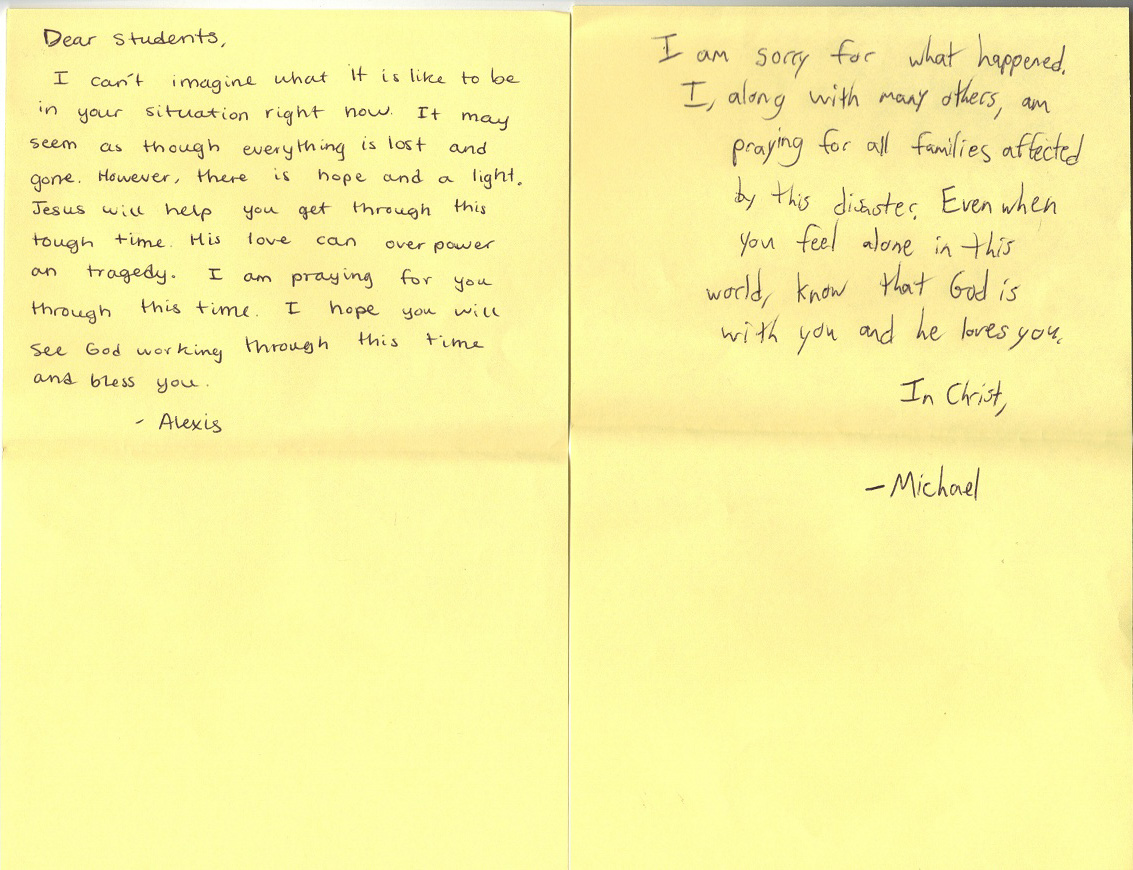 Dear students,
I can't imagine what it is like to be
in your situation right now. It may
seem as though everything is lost and
gone. However, there is hope and a light.
Jesus will help you get through this
tough time. His love can over power
an tragedy. I am praying for you
through this time. I hope you will
see God working through this time
and bless you.
- Alexis
I am sorry for what happened.
I, along with many others, am
praying for all families affected
by this disaster. Even when
you feel alone in this
world, know that God is
with you and he loves you.
In Christ,
- Michael